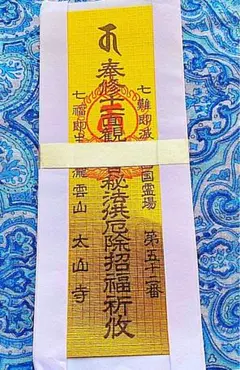 七難即滅 四国霊場 第五十二番
奉修十一面観 秘法供厄除招福祈攸
七福即生 瀧雲山 太山寺